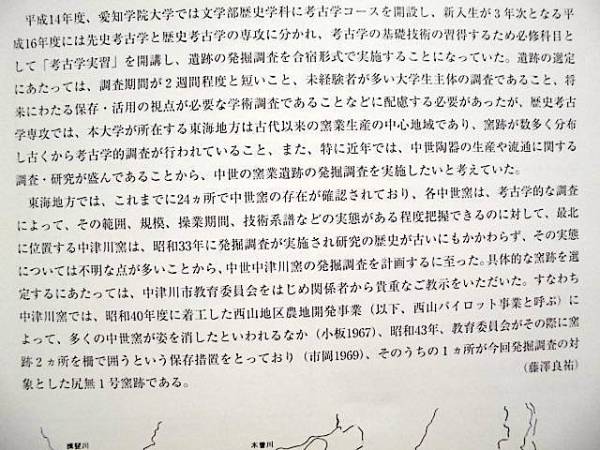 平成14年度、愛知学院大学では文学部歴史学科に考古学コースを開設し、新入生が3年次となる平
成16年度には先史考古学と歴史考古学の専攻に分かれ、考古学の基礎技術の習得するため必修科目と
して「考古学実習」を開講し、遺跡の発掘調査を合宿形式で実施することになっていた。遺跡の選定
にあたっては、調査期間が2週間程度と短いこと、未経験者が多い大学生主体の調査であること、将
来にわたる保存・活用の視点が必要な学術調査であることなどに配慮する必要があったが、歴史考古
学専攻では、本大学が所在する東海地方は古代以来の窯業生産の中心地域であり、窯跡が数多く分布
し古くから考古学的調査が行われていること、また、特に近年では、中世陶器の生産や流通に関する
調査・研究が盛んであることから、中世の窯業遺跡の発掘調査を実施したいと考えていた。
東海地方では、これまでに24ヵ所で中世窯の存在が確認されており、各中世窯は、考古学的な調査
によって、その範囲、規模、操業期間、技術系譜などの実態がある程度把握できるのに対して、最北
に位置する中津川窯は、昭和33年に発掘調査が実施され研究の歴史が古いにもかかわらず、その実態
については不明な点が多いことから、中世中津川窯の発掘調査を計画するに至った。具体的な窯跡を選
定するにあたっては、中津川市教育委員会をはじめ関係者から貴重なご教示をいただいた。すなわち
中津川窯では、昭和40年度に着工した西山地区農地開発事業（以下、西山パイロット事業と呼ぶ）に
よって、多くの中世窯が姿を消したといわれるなか（小板1967）、昭和43年、教育委員会がその際に窯
跡2ヵ所を柵で囲うという保存措置をとっており（市岡1969）、そのうちの1ヵ所が今回発掘調査の対
象とした尻無1号窯跡である。
（藤澤良祐）
揖斐川
木曽川